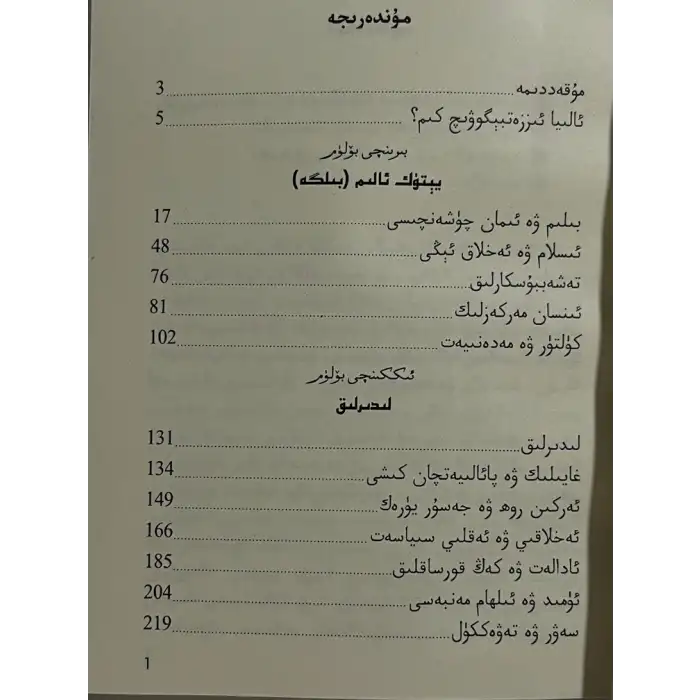 مۇندەرىجە
مۇقەددىمە 3
ئالىيا ئىززەتبېگوۋىچ كىم؟ 5
بىرىنچى بۆلۈم
يېتۈك ئالىم (بىلگە)
بىلىم ۋە ئىمان چۈشەنچىسى 17
ئىسلام ۋە ئەخلاق ئېڭى 48
تەشەببۇسكارلىق 76
ئىنسان مەركەزلىك 81
كۈلتۈر ۋە مەدەنىيەت 102
ئىككىنچى بۆلۈم
لىدىرلىق
لىدىرلىق 131
غايىلىك ۋە پائالىيەتچان كىشى 134
ئەركىن روھ ۋە جەسۇر يۈرەك 149
ئەخلاقىي ۋە ئەقلىي سىياسەت 166
ئادالەت ۋە كەڭ قورساقلىق 185
ئۈمىد ۋە ئىلھام مەنبەسى 204
سەۋر ۋە تەۋەككۈل 219
1